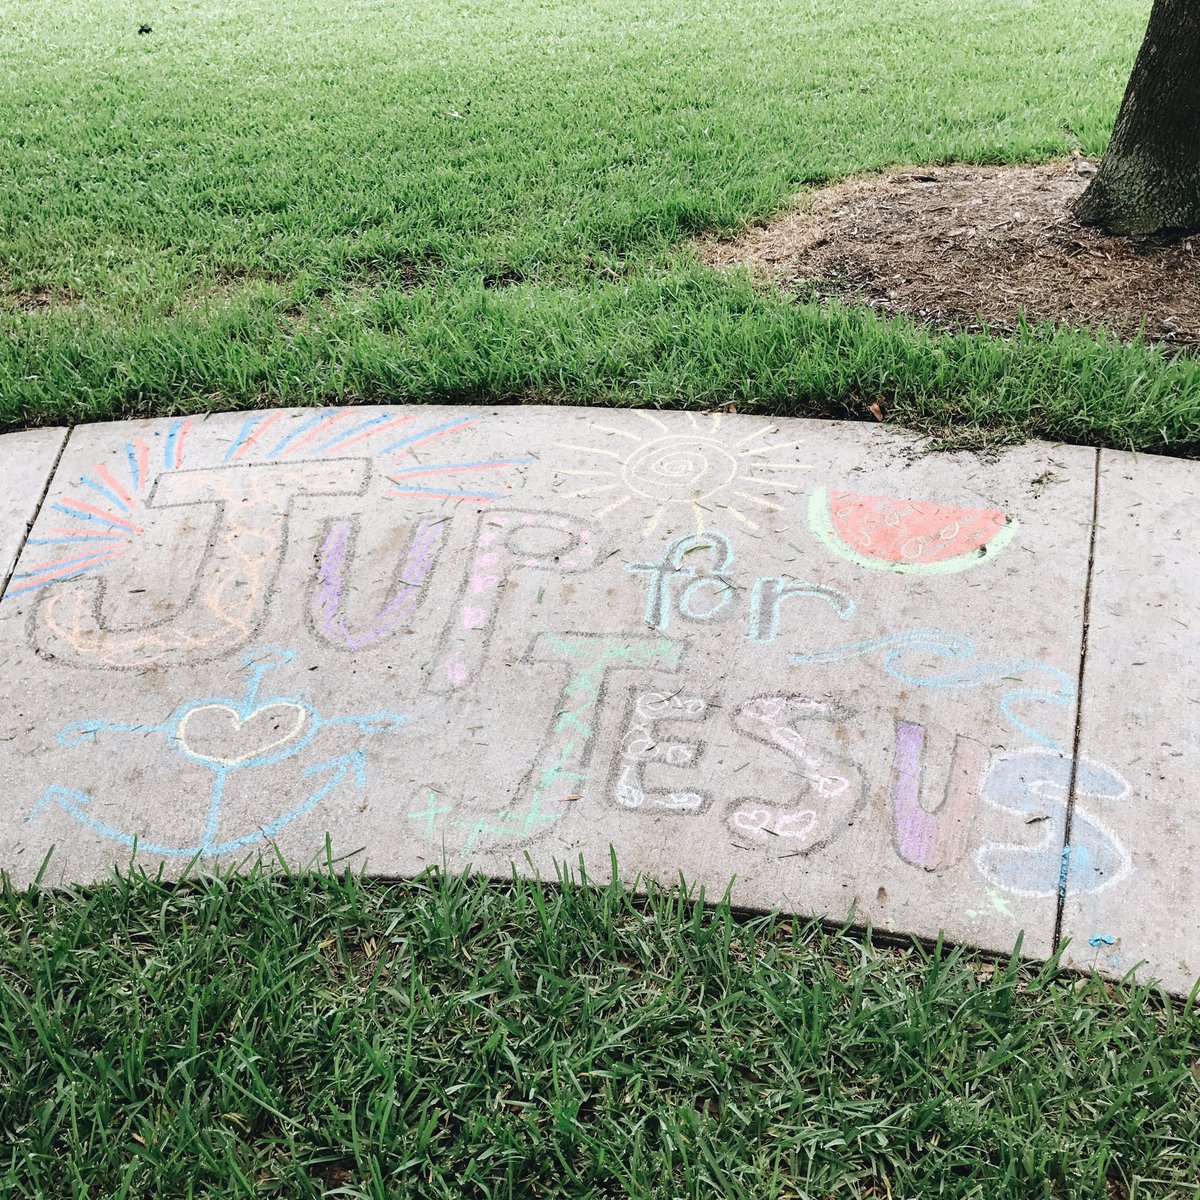 JUP for
JESUS